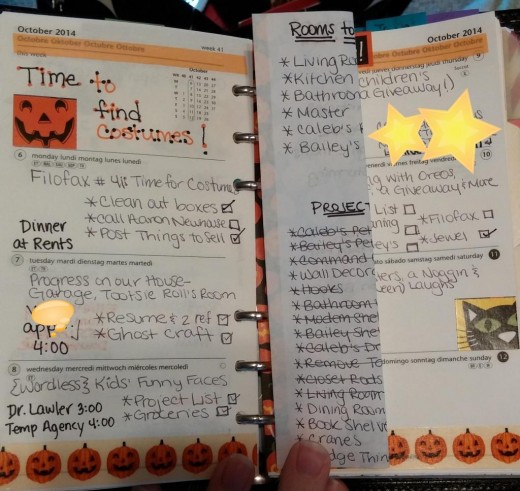 October 2014
Octubre Oktober Octobre Ottobre
this week
week 41
October
Time to
find
costumes!
6 monday lundi montag lunes lunedì
Filofax # 41: Time for Costume
*Clean out boxes
*Call Aaron Newhouse
*Post Things to Sell
Dinner
at Rents
7 tuesday mardi dienstag martes martedì
Progress on our House-
Garage, Tootsie Roll's Room
app :)
4:00
*Resume & 2 ref
*Ghost Craft
8 wednesday mercredi mittwoch miércoles mercoledì
{Wordless} Kids' Funny Faces
Dr. Lawler 3:00
Temp Agency 4:00
*Project List
*Groceries
Rooms to
*Living Ro
*Kitchen
*Bathroom
*Master
*Caleb's
*Bailey's
Project
*Caleb's Pet
*Bailey's Pe
*Command
*Wall Decor
*Hooks
*Bathroom
*Modem Shel
*Bailey Shel
*Caleb's Dr
*Remove To
*Closet Rods
*Living Room
*Dining Room
*Book Shelv
*Cranes
dge Thin
October 2014
Octubre Oktober Octobre Ottobre
!
jeudi thursday
9
Children's
Giveaway!)
vendredi viernes freitag venerdì
10
ng with Oreos,
a Giveaway & More
List
*Filofax
*Jewel
sábado samstag samedi saturday
11
ers, a Noggin &
een} Laughs
domingo sonntag dimanche sunday
12